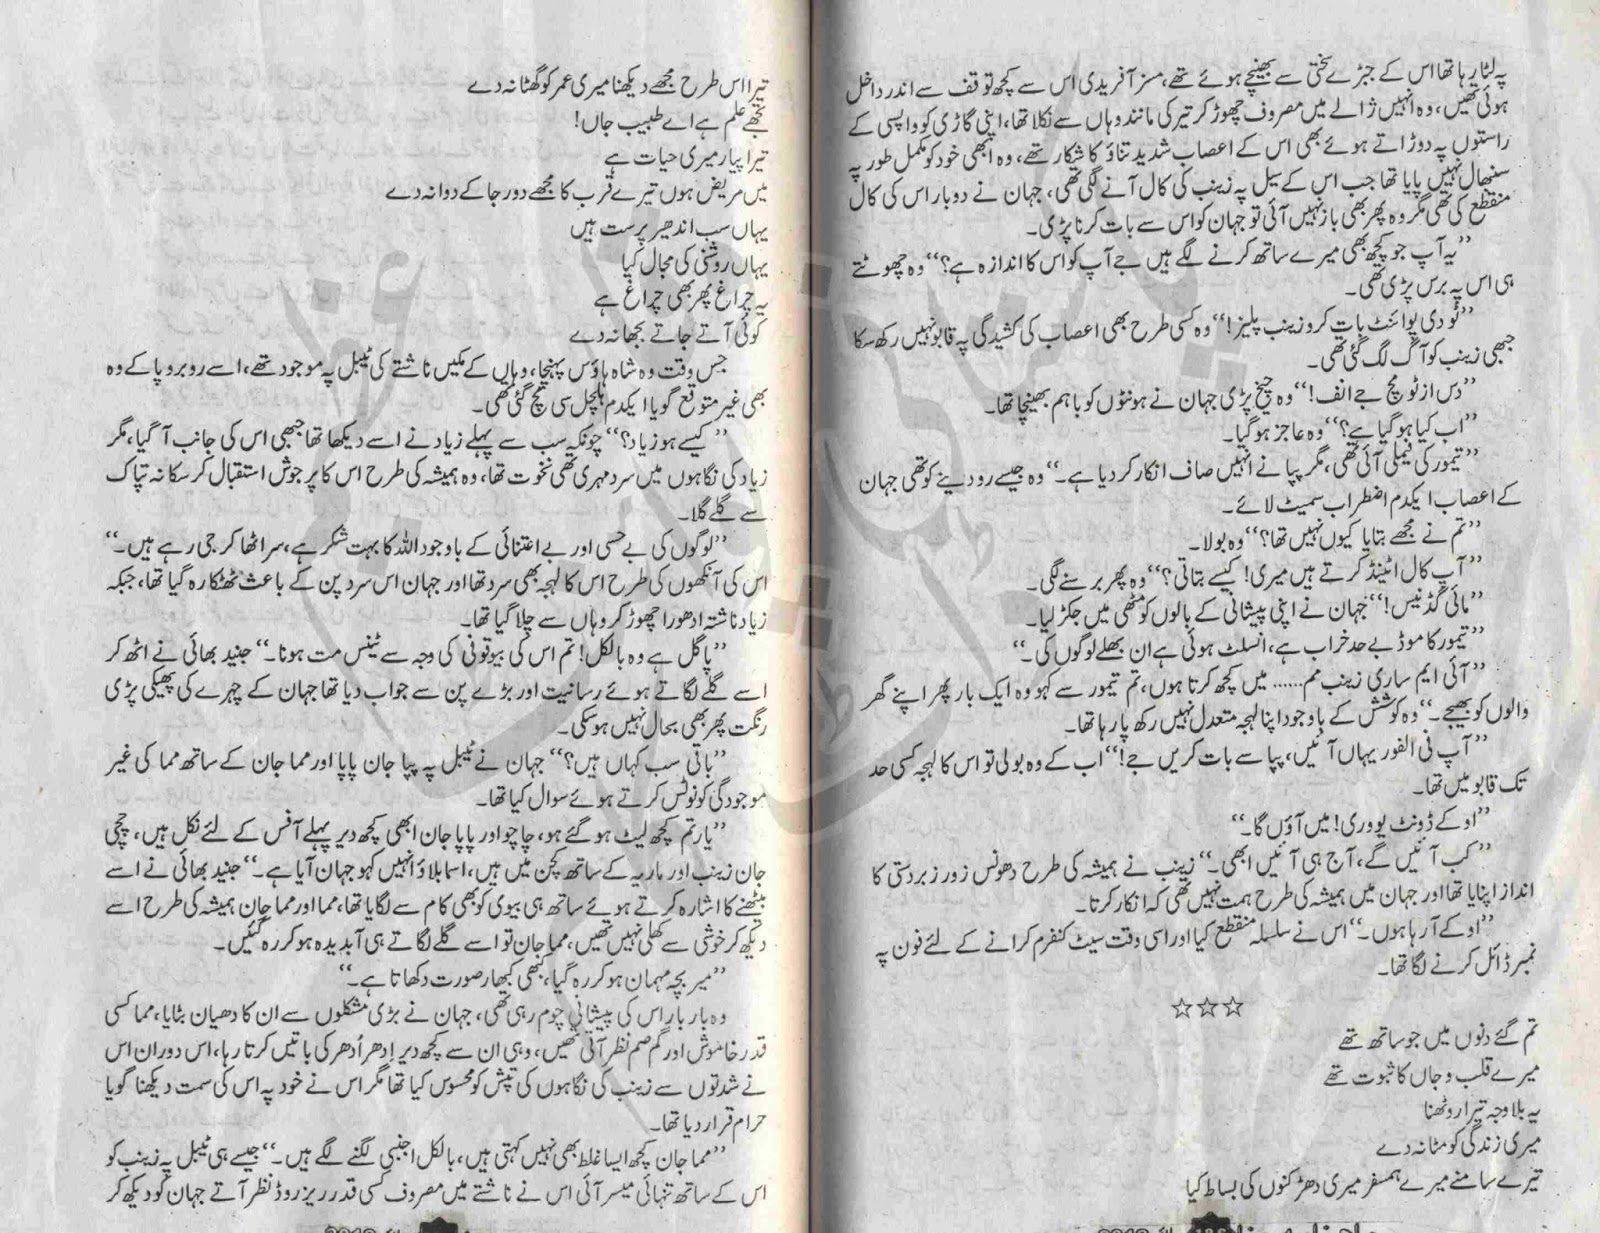 پہ لٹا رہا تھا اس کے جبڑے سختی سے بھینچے ہوئے تھے، مسز آفریدی اس سے کچھ توقف سے اندر داخل
ہوئی تھیں، وہ انہیں ژالے میں مصروف چھوڑ کر تیر کی مانند وہاں سے نکلا تھا، اپنی گاڑی کو واپسی کے
راستوں پہ دوڑاتے ہوئے بھی اس کے اعصاب شدید تناؤ کا شکار تھے، وہ ابھی خود کو مکمل طور پہ
سنبھال نہیں پایا تھا جب اس کے سیل پہ زینب کی کال آنے لگی تھی، جہان نے دوبار اس کی کال
منقطع کی تھی مگر وہ پھر بھی باز نہیں آئی تو جہان کو اس سے بات کرنا پڑی۔
’’یہ آپ جو کچھ بھی میرے ساتھ کرنے لگے ہیں جے آپ کو اس کا اندازہ ہے؟‘‘ وہ چھوٹتے
ہی اس پہ برس پڑی تھی۔
’’ٹو دی پوائنٹ بات کرو زینب پلیز!‘‘ وہ کسی طرح بھی اعصاب کی کشیدگی پہ قابو نہیں رکھ سکا
جبھی زینب کو آگ لگ گئی تھی۔
’’دس از ٹو مچ جے انف!‘‘ وہ چیخ پڑی جہان نے ہونٹوں کو باہم بھینچا تھا۔
’’اب کیا ہو گیا ہے؟‘‘ وہ عاجز ہو گیا۔
’’تیمور کی فیملی آئی تھی، مگر پپا نے انہیں صاف انکار کر دیا ہے۔‘‘ وہ جیسے رو دینے کو تھی جہان
کے اعصاب ایکدم اضطراب سمیٹ لائے۔
’’تم نے مجھے بتایا کیوں نہیں تھا؟‘‘ وہ بولا۔
’’آپ کال اٹینڈ کرتے ہیں میری! کیسے بتاتی؟‘‘ وہ پھر برسنے لگی۔
’’مائی گڈنیس!‘‘ جہان نے اپنی پیشانی کے بالوں کو مٹھی میں جکڑ لیا۔
’’تیمور کا موڈ بے حد خراب ہے، انسلٹ ہوئی ہے ان بھلے لوگوں کی۔‘‘
’’آئی ایم ساری زینب مم...... میں کچھ کرتا ہوں، تم تیمور سے کہو وہ ایک بار پھر اپنے گھر
والوں کو بھیجے۔‘‘ وہ کوشش کے باوجود اپنا لہجہ معتدل نہیں رکھ پا رہا تھا۔
’’آپ فی الفور یہاں آئیں، پپا سے بات کریں جے!‘‘ اب کے وہ بولی تو اس کا لہجہ کسی حد
تک قابو میں تھا۔
’’اوکے ڈونٹ یو وری! میں آؤں گا۔‘‘
’’کب آئیں گے، آج ہی آئیں ابھی۔‘‘ زینب نے ہمیشہ کی طرح دھونس زور زبردستی کا
انداز اپنایا تھا اور جہان میں ہمیشہ کی طرح ہمت نہیں تھی کہ انکار کرتا۔
’’اوکے آ رہا ہوں۔‘‘ اس نے سلسلہ منقطع کیا اور اسی وقت سیٹ کنفرم کرانے کے لئے فون پہ
نمبر ڈائل کرنے لگا تھا۔
☆☆☆
تم گئے دنوں میں جو ساتھ تھے
میرے قلب و جاں کا ثبوت تھے
یہ بلاوجہ تیرا روٹھنا
میری زندگی کو مٹا نہ دے
تیرے سامنے میرے ہمسفر میری دھڑکنوں کی بساط کیا
تیرا اس طرح مجھے دیکھنا میری عمر کو گھٹا نہ دے
تجھے علم ہے اے طبیب جاں!
تیرا پیار میری حیات ہے
میں مریض ہوں تیرے قرب کا مجھے دور جا کے دوا نہ دے
یہاں سب اندھیر پرست ہیں
یہاں روشنی کی مجال کیا
یہ چراغ پھر بھی چراغ ہے
کوئی آتے جاتے بجھا نہ دے
جس وقت وہ شاہ ہاؤس پہنچا، وہاں کے مکیں ناشتے کی ٹیبل پہ موجود تھے، اسے روبرو پا کے وہ
بھی غیر متوقع گویا ایکدم ہلچل سی مچ گئی تھی۔
’’کیسے ہو زیاد؟‘‘ چونکہ سب سے پہلے زیاد نے اسے دیکھا تھا جبھی اس کی جانب آ گیا، مگر
زیاد کی نگاہوں میں سرد مہری تھی نخوت تھا، وہ ہمیشہ کی طرح اس کا پرجوش استقبال کر سکا نہ تپاک
سے گلے گلا۔
’’لوگوں کی بے حسی اور بے اعتنائی کے باوجود اللہ کا بہت شکر ہے، سر اٹھا کر جی رہے ہیں۔‘‘
اس کی آنکھوں کی طرح اس کا لہجہ بھی سرد تھا اور جہان اس سرد پن کے باعث ٹھٹکا رہ گیا تھا، جبکہ
زیاد ناشتہ ادھورا چھوڑ کر وہاں سے چلا گیا تھا۔
’’پاگل ہے وہ بالکل! تم اس کی بیوقوفی کی وجہ سے ٹینس مت ہونا۔‘‘ جنید بھائی نے اٹھ کر
اسے گلے لگاتے ہوئے رسانیت اور بڑے پن سے جواب دیا تھا جہان کے چہرے کی پھیکی پڑی
رنگت پھر بھی بحال نہیں ہو سکی۔
’’باقی سب کہاں ہیں؟‘‘ جہان نے ٹیبل پہ پپا جان پاپا اور مما جان کے ساتھ مما کی غیر
موجودگی کو نوٹس کرتے ہوئے سوال کیا تھا۔
’’یار تم کچھ لیٹ ہو گئے ہو، چاچو اور پاپا جان ابھی کچھ دیر پہلے آفس کے لئے نکل ہیں، چچی
جان زینب اور ماریہ کے ساتھ کچن میں ہیں، اسما بلاؤ انہیں کہو جہان آیا ہے۔‘‘ جنید بھائی نے اسے
بیٹھنے کا اشارہ کرتے ہوئے ساتھ ہی بیوی کو بھی کام سے لگایا تھا، مما اور مما جان ہمیشہ کی طرح اسے
دیکھ کر خوشی سے کھلی نہیں تھیں، مما جان تو اسے گلے لگاتے ہی آبدیدہ ہو کر رہ گئیں۔
’’میر بچہ مہمان ہو کر رہ گیا، کبھی کبھار صورت دکھاتا ہے۔‘‘
وہ بار بار اس کی پیشانی چوم رہی تھی، جہان نے بڑی مشکلوں سے ان کا دھیان بٹایا، مما کسی
قدر خاموش اور گم صم نظر آئی تھیں، وہی ان سے کچھ دیر اِدھر اُدھر کی باتیں کرتا رہا، اس دوران اس
نے شدتوں سے زینب کی نگاہوں کی تپش کو محسوس کیا تھا مگر اس نے خود پہ اس کی سمت دیکھنا گویا
حرام قرار دیا تھا۔
’’مما جان کچھ ایسا غلط بھی نہیں کہتی ہیں، بالکل اجنبی لگنے لگے ہیں۔‘‘ جیسے ہی ٹیبل پہ زینب کو
اس کے ساتھ تنہائی میسر آئی اس نے ناشتے میں مصروف کسی قدر ریزروڈ نظر آتے جہان کو دیکھ کر